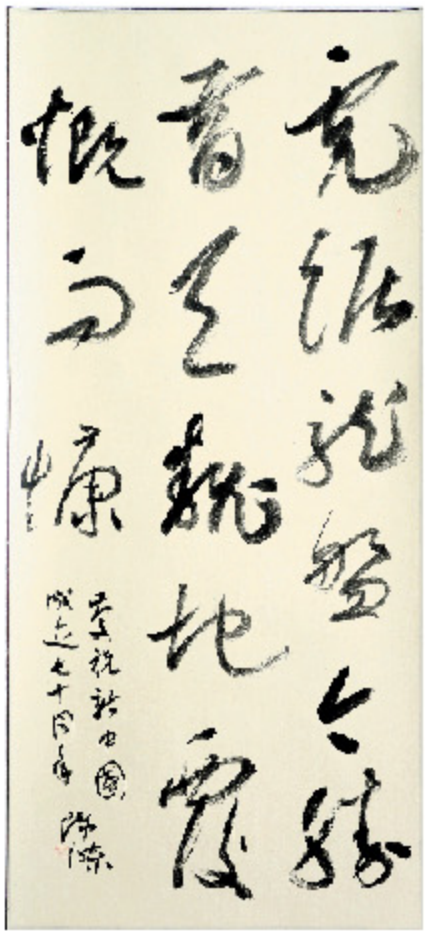 虎踞龍盘今勝
昔天翻地覆
慨而慷
祝新中國
成立七十周年